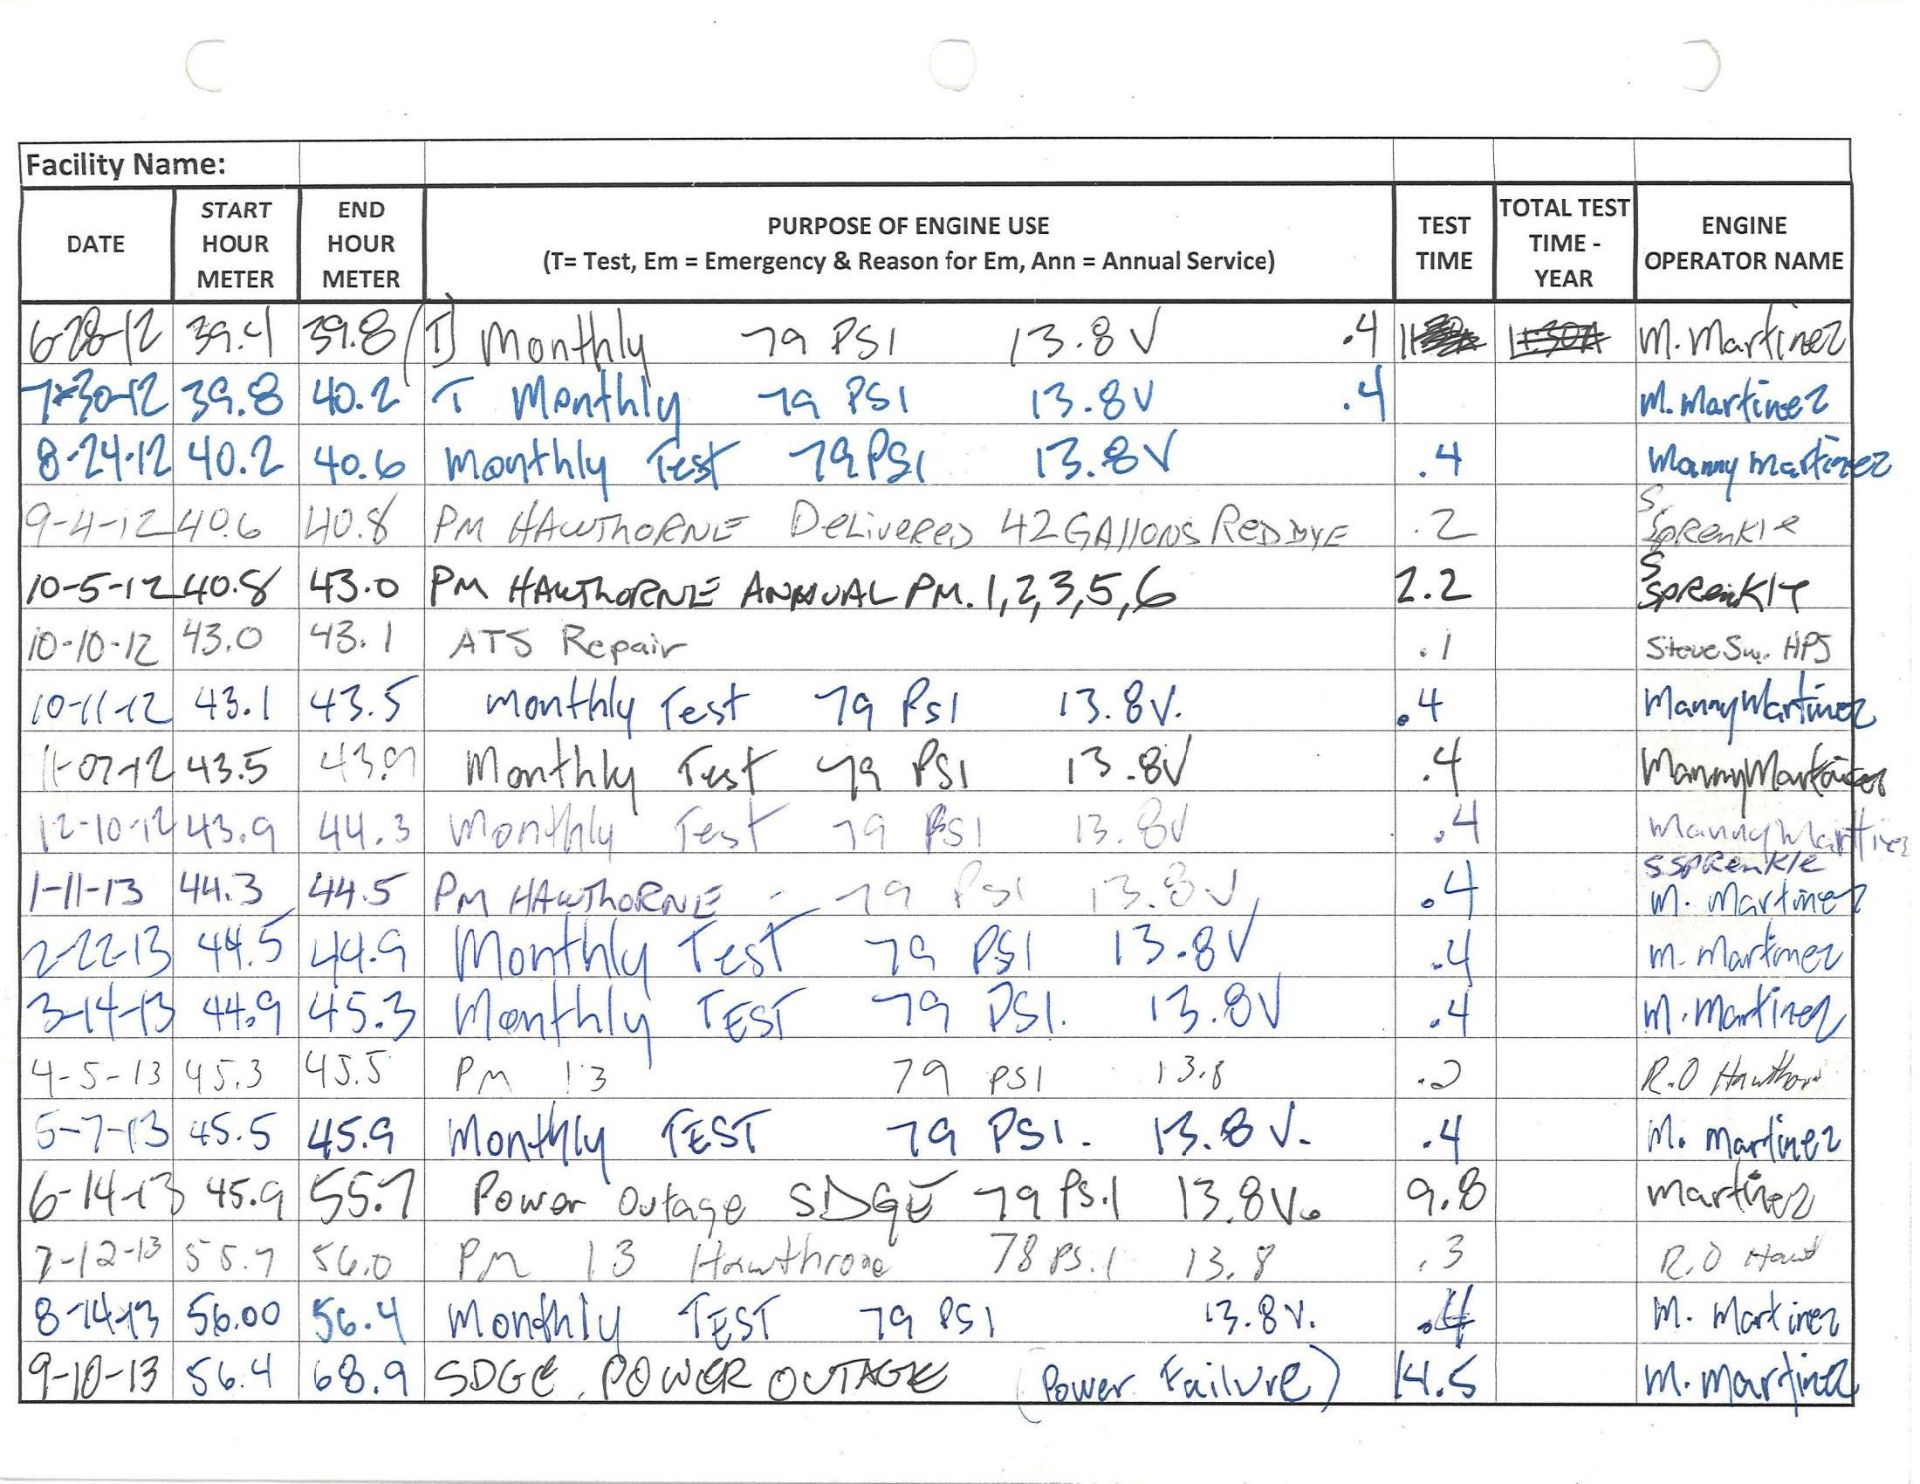 Facility Name:
DATE START HOUR METER END HOUR METER PURPOSE OF ENGINE USE (T= Test, Em = Emergency & Reason for Em, Ann = Annual Service) TEST TIME TOTAL TEST TIME - YEAR ENGINE OPERATOR NAME
6-28-12 39.4 39.8 (T) Monthly 79 PSI 13.8 V .4 M. Martinez
7-30-12 39.8 40.2 T Monthly 79 PSI 13.8V .4 M. Martinez
8-24-12 40.2 40.6 Monthly Test 79 PSI 13.8V .4 Manny Martinez
9-4-12 40.6 40.8 PM HAWThORNE DeLivereD 42 GAllONS RED DYE .2 S. SpRenkle
10-5-12 40.8 43.0 PM HAWThORNE ANNUAL PM. 1,2,3,5,6 2.2 S SpRenkle
10-10-12 43.0 43.1 ATS Repair .1 Steve Sw. HPS
10-11-12 43.1 43.5 Monthly Test 79 PSI 13.8V. .4 Manny Martinez
11-07-12 43.5 43.9 Monthly Test 79 PSI 13.8V .4 Manny Martinez
12-10-12 43.9 44.3 Monthly Test 79 PSI 13.8V .4 Manny Martinez
1-11-13 44.3 44.5 PM HAWThORNE - 79 PSI 13.8V .4 S SpRenkle M. Martinez
2-22-13 44.5 44.9 Monthly Test 79 PSI 13.8V .4 M. Martinez
3-14-13 44.9 45.3 Monthly TEST 79 PSI. 13.8V .4 M. Martinez
4-5-13 45.3 45.5 PM 13 79 PSI 13.8 .2 R.O
5-7-13 45.5 45.9 Monthly TEST 79 PSI. 13.8 V. .4 M. Martinez
6-14-13 45.9 55.7 Power Outage SDGE 79 PS.I 13.8V. 9.8 Martinez
7-12-13 55.7 56.0 PM 13 Hawthrone 78 PS.I 13.8 .3 R.O
8-14-13 56.00 56.4 Monthly TEST 79 PSI 13.8V. .4 M. Martinez
9-10-13 56.4 68.9 SDGE. POWER OUTAGE (Power Failure) 14.5 M. Martinez